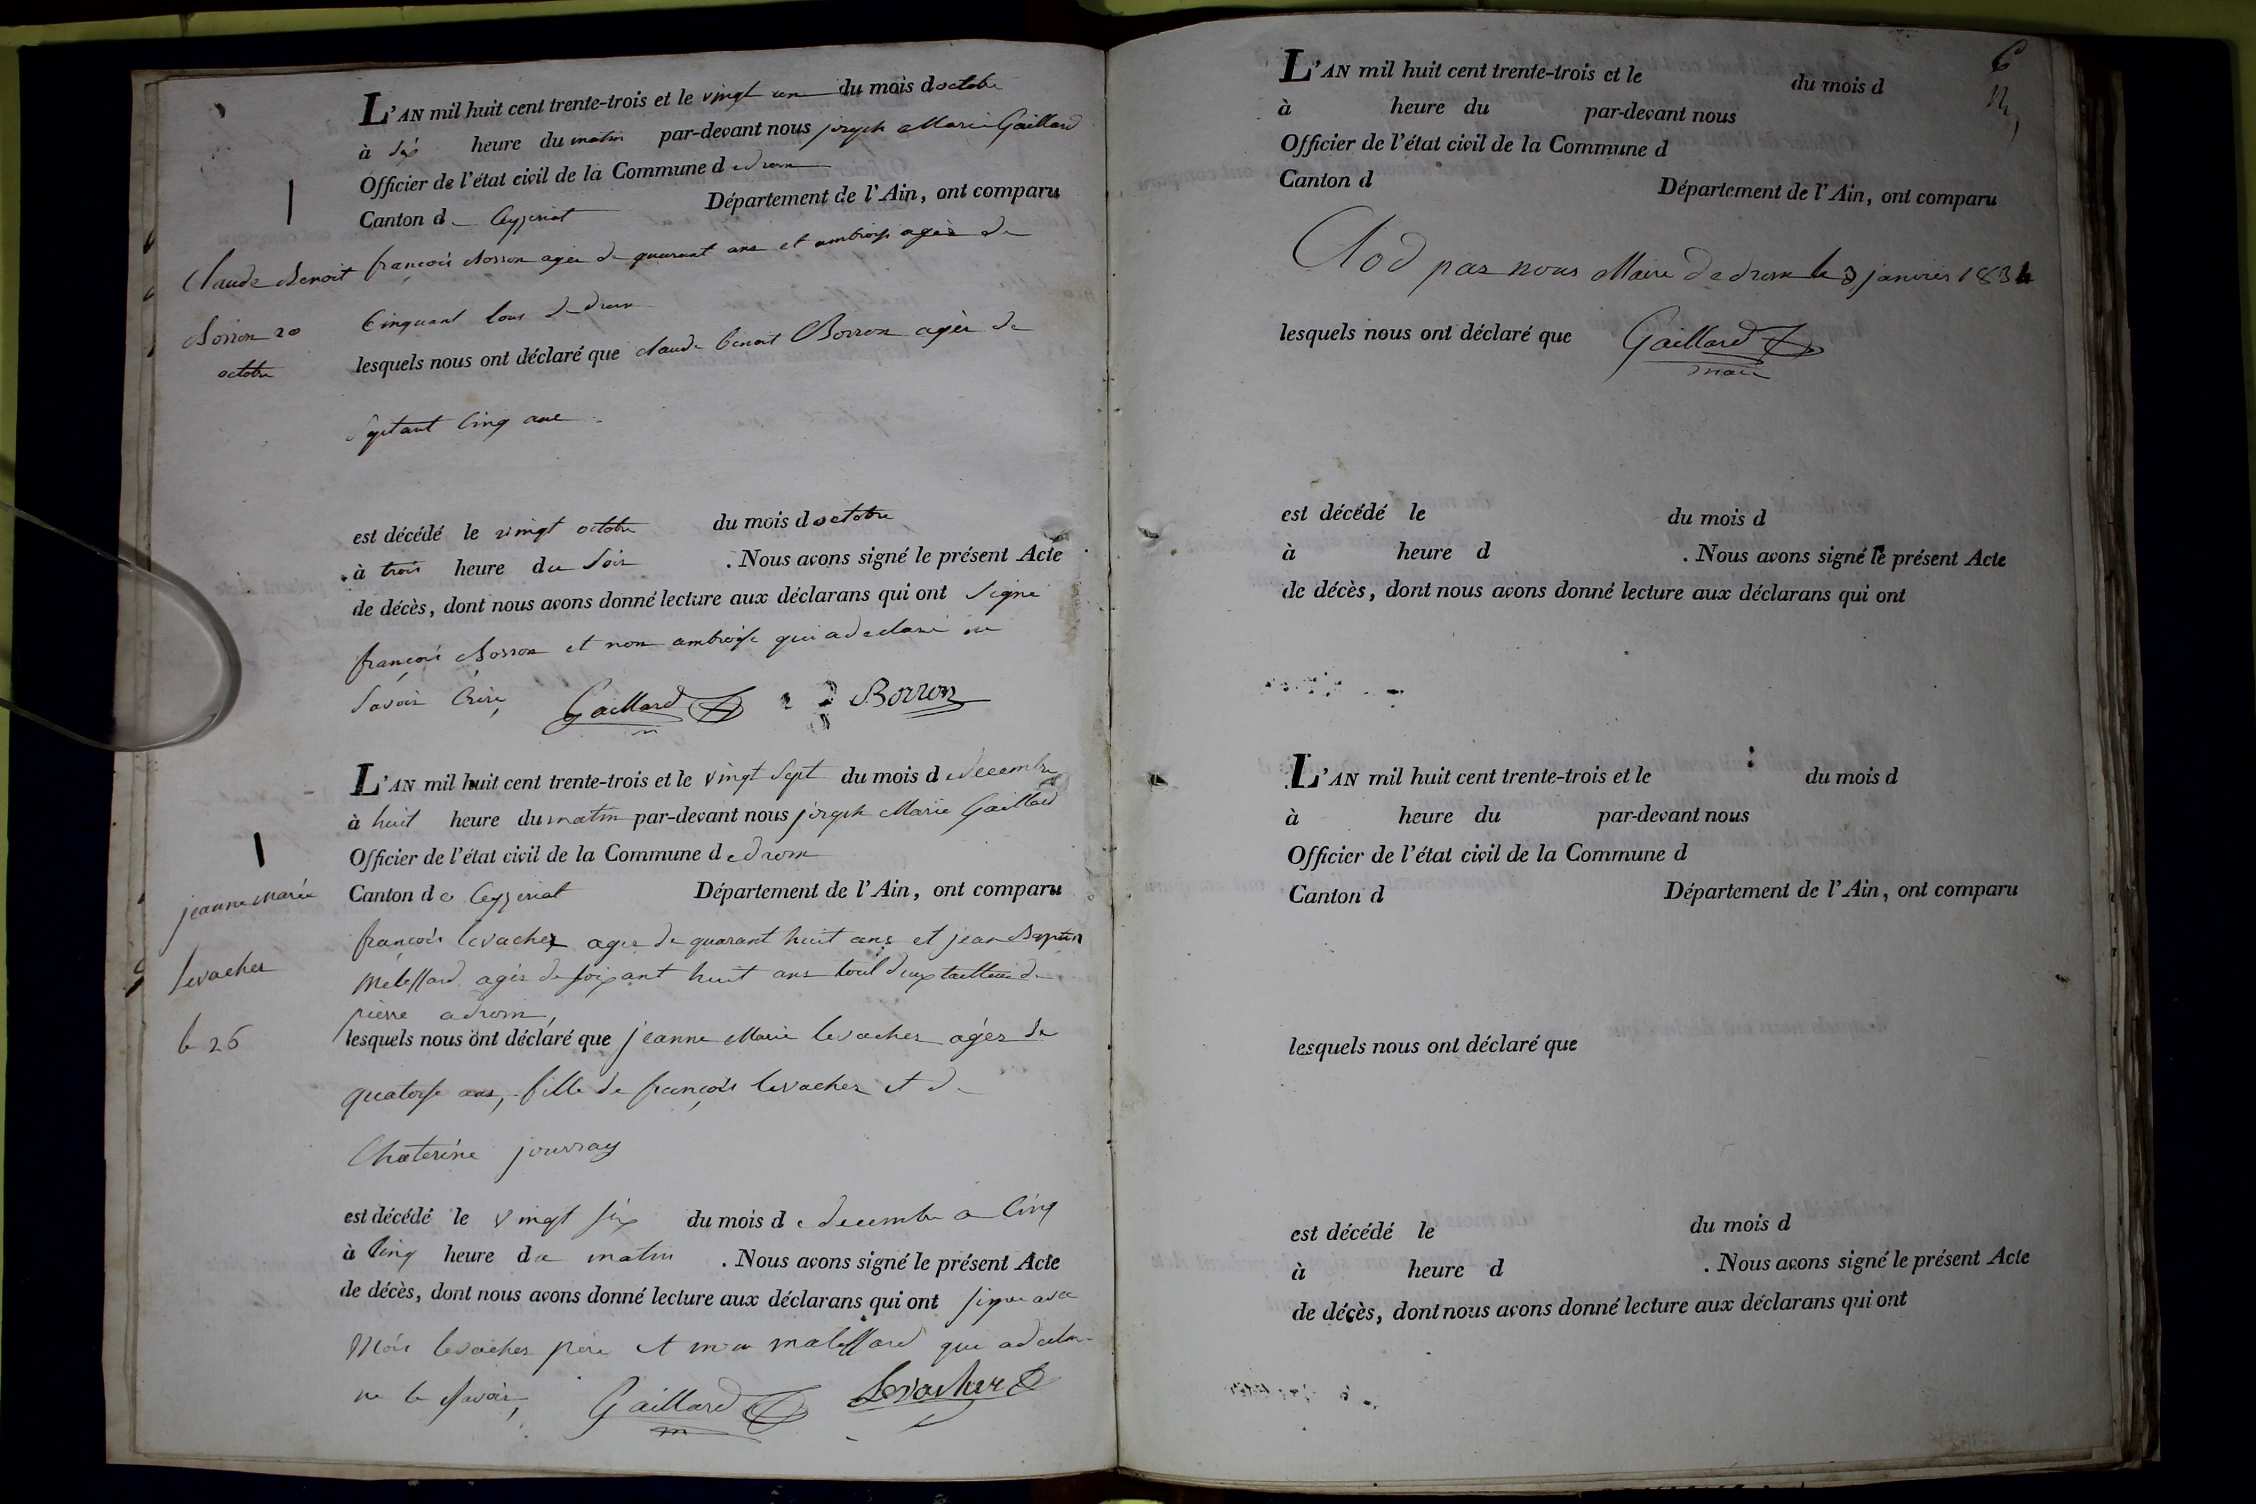 L'AN mil huit cent trente-trois et le vingt un du mois d octobre
à six heure du matin par-devant nous joseph Marie Gaillard
Officier de l'état civil de la Commune d e drom
Canton d e Ceyzeriat Département de l'Ain, ont comparu
françois Borron agée de quarant ans et ambroise agée de
Cinquant tous de drom
lesquels nous ont déclaré que claude benoit Borron agèe de
Septant Cinq ans
est décédé le vingt octobre du mois d octobre
à trois heure du Soir . Nous avons signé le présent Acte
de décès, dont nous avons donné lecture aux déclarans qui ont signé
françois Borron et non ambroise qui a declaré ne
Savoir Crire, Gaillard Borron
Claude Benoit
Borron 20
octobre
L'AN mil huit cent trente-trois et le vingt Sept du mois d e decembre
à huit heure du matin par-devant nous joseph Marie Gaillard
Officier de l'état civil de la Commune d e drom
Canton d e Ceyzeriat Département de l'Ain, ont comparu
françois levacher agée de quarant huit ans et jean Baptis
agés de soixant huit ans tout deux tailleur de
pierre a drom,
lesquels nous ont déclaré que jeanne Marie levacher agée de
quatorse ans, fille de françois levacher et de
Chaterine jouvray
est décédé le vingt six du mois d e decembre a Cinq
à Cinq heure du matin . Nous avons signé le présent Acte
de décès, dont nous avons donné lecture aux déclarans qui ont signe avec
Mois levacher père et non qui a declaré
ne le Savoir, Gaillard Levacher
jeanne marie
levacher
le 26
6
L'AN mil huit cent trente-trois et le du mois d
à heure du par-devant nous
Officier de l'état civil de la Commune d
Canton d Département de l'Ain, ont comparu
Clod par nous Maire de drom le 3 janvier 1834
lesquels nous ont déclaré que Gaillard
maire
est décédé le du mois d
à heure d . Nous avons signé le présent Acte
de décès, dont nous avons donné lecture aux déclarans qui ont
L'AN mil huit cent trente-trois et le du mois d
à heure du par-devant nous
Officier de l'état civil de la Commune d
Canton d Département de l'Ain, ont comparu
lesquels nous ont déclaré que
est décédé le du mois d
à heure d . Nous avons signé le présent Acte
de décès, dont nous avons donné lecture aux déclarans qui ont